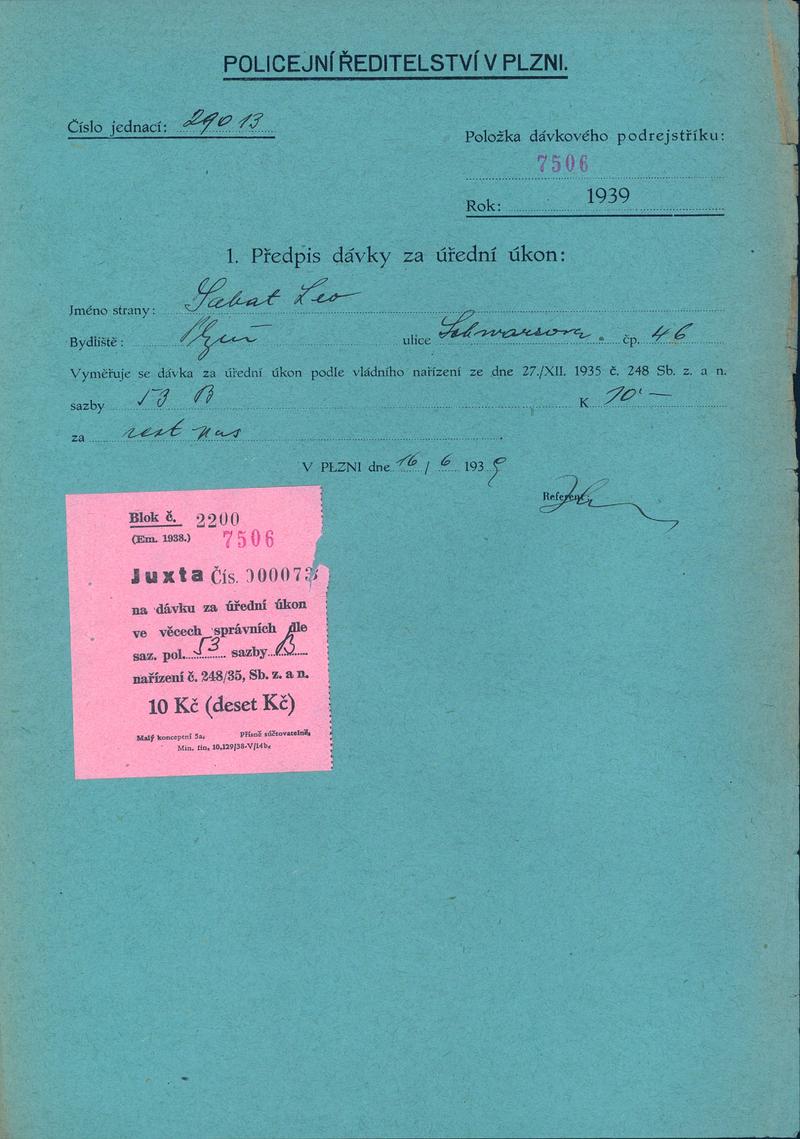 POLICEJNÍ ŘEDITELSTVÍ V PLZNI.
Číslo jednací: 29013
Položka dávkového podrejstříku:
7506
Rok: 1939
1. Předpis dávky za úřední úkon:
Jméno strany: Sabat Leo
Bydliště: Plzeň ulice čp. 46
Vyměřuje se dávka za úřední úkon podle vládního nařízení ze dne 27./XII. 1935 č. 248 Sb. z. a n.
sazby 53 B K 10·—
za cest pas
V PLZNI dne 16 / 6 1939
Referent:
Blok č. 2200
(Em. 1938.) 7506
Juxta Čís. 000073
na dávku za úřední úkon
ve věcech správních dle
saz. pol. 53 sazby B
nařízení č. 248/35, Sb. z. a n.
10 Kč (deset Kč)
Malý konceptní 5a, Přísně súčtovatelné,
Min. fin. 10.129/38-V/14b,